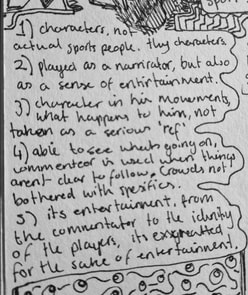 sport
1) characters, not
actual sports people. they characters
2) played as a narrirator, but also
as a sense of entirtainment.
3) character in his movements,
what happens to him, not
taken as a serious 'ref'
4) able to see whats going on,
commenteor is used when things
arent clear to follow. Crowds not
bothered with spesifics.
5) its entertainment. from
the commentator to the identity
of the players, its exxgreatted
for the sake of entertainment.